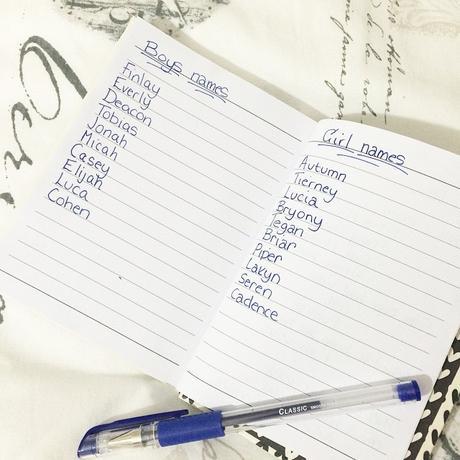 Boys names
Finlay
Everly
Deacon
Tobias
Jonah
Micah
Casey
Elijah
Luca
Cohen
Girl names
Autumn
Tierney
Lucia
Bryony
Tegan
Briar
Piper
Lakyn
Seren
Cadence
CLASSIC